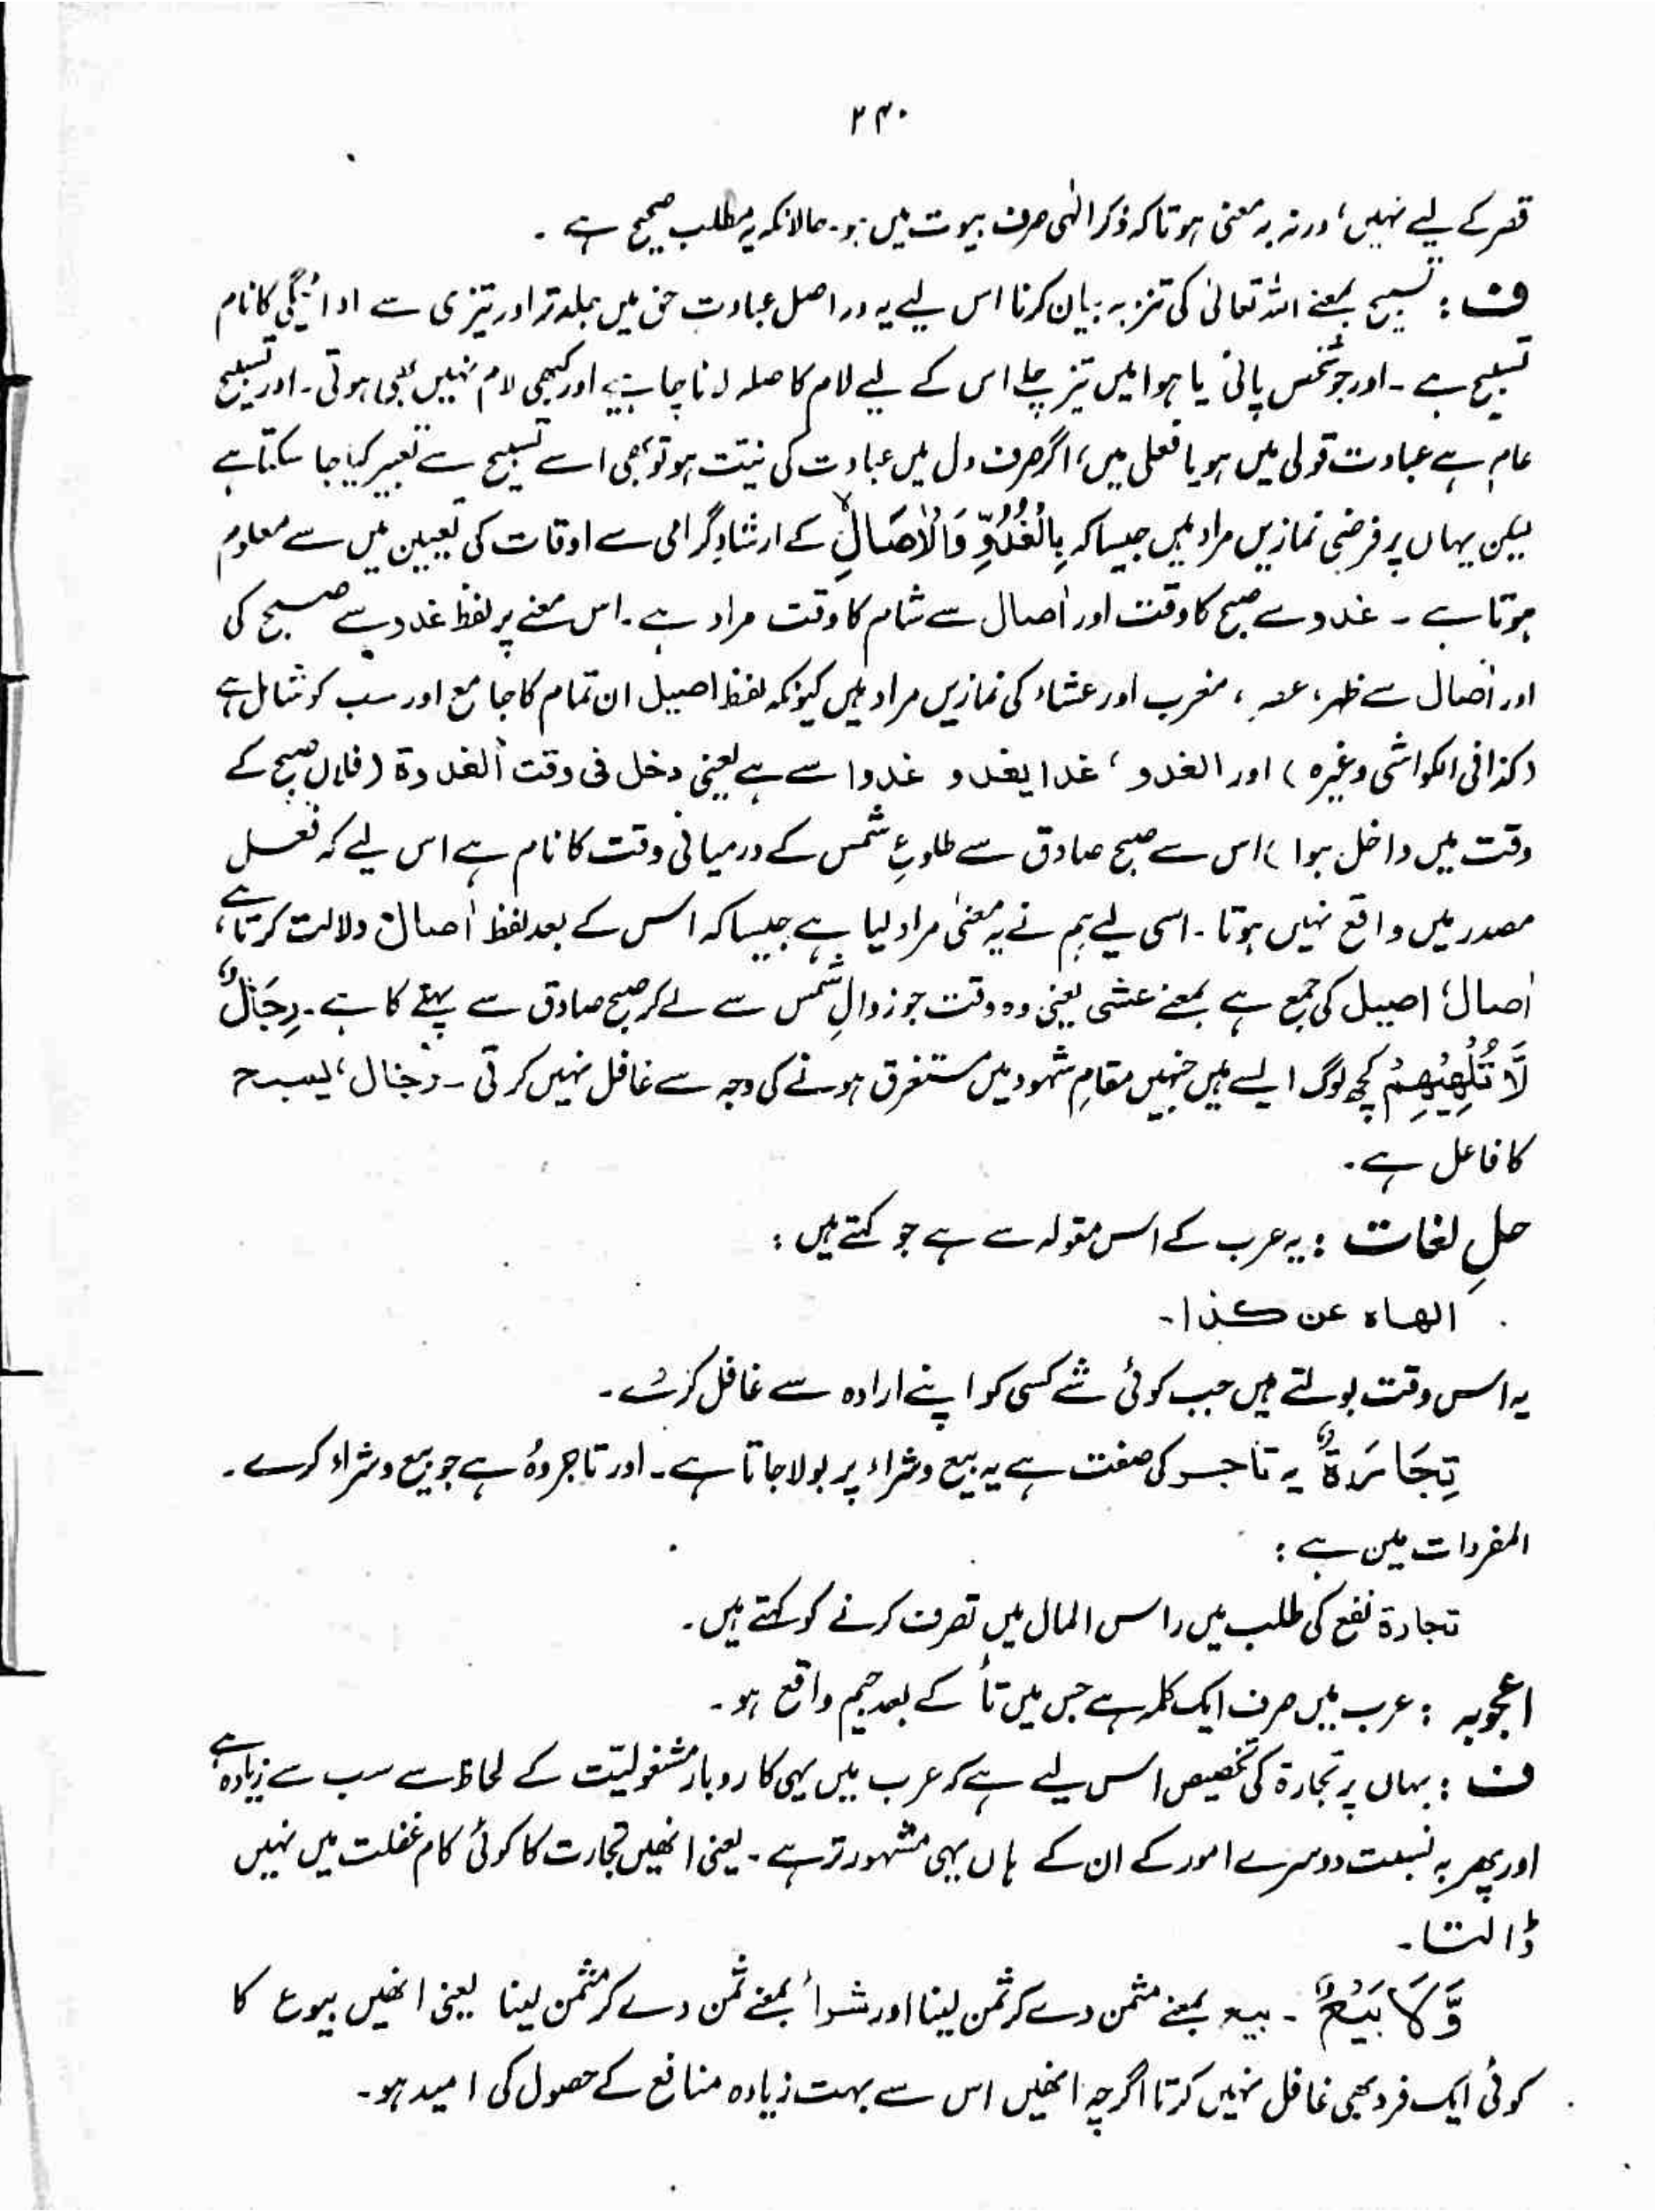 ۲۴۰
قصر کے لیے نہیں، ورنہ یہ معنی ہوتا کہ ذکر الٰہی صرف بیوت میں ہو۔ حالانکہ یہ مطلب صحیح ہے ۔
ف : تسبیح بمعنے اللہ تعالیٰ کی تنزیہ بیان کرنا اس لیے یہ در اصل عبادت حق میں جلد تر اور تیزی سے ادائیگی کا نام
تسبیح ہے ۔ اور جو شخص پانی یا ہوا میں تیز چلے اس کے لیے لام کا صلہ لانا چاہیے اور کبھی لام نہیں بھی ہوتی ۔ اور تسبیح
عام ہے عبادت قولی میں ہو یا فعلی میں، اگر صرف دل میں عبادت کی نیت ہو تو بھی اسے تسبیح سے تعبیر کیا جا سکتا ہے
لیکن یہاں پر فرضی نمازیں مراد ہیں جیسا کہ بِالْغُدُوِّ وَالْاٰصَالِ کے ارشادِ گرامی سے اوقات کی تعیین میں سے معلوم
ہوتا ہے ۔ غدو سے صبح کا وقت اور اٰصال سے شام کا وقت مراد ہے ۔ اس معنے پر لفظ غدو سے صبح کی
اور اٰصال سے ظہر، عصر ، مغرب اور عشاء کی نمازیں مراد ہیں کیونکہ لفظ اصیل ان تمام کا جامع اور سب کو شامل ہے
(کذا فی الکواشی وغیرہ) اور الغدو ، غدا یغدو غدوا سے ہے یعنی دخل فی وقت الغدوة (فلاں صبح کے
وقت میں داخل ہوا) اس سے صبح صادق سے طلوعِ شمس کے درمیانی وقت کا نام ہے اس لیے کہ فعل
مصدر میں واقع نہیں ہوتا ۔ اسی لیے ہم نے یہ معنیٰ مراد لیا ہے جیسا کہ اس کے بعد لفظ اٰصال دلالت کرتا ہے،
اٰصال، اصیل کی جمع ہے بمعنے عشی یعنی وہ وقت جو زوالِ شمس سے لے کر صبح صادق سے پہلے کا ہے ۔ رِجَالٌ
لَّا تُلْهِيْهِمْ کچھ لوگ ایسے ہیں جنہیں مقامِ شہود میں مستغرق ہونے کی وجہ سے غافل نہیں کرتی ۔ رجال، یسبح
کا فاعل ہے ۔
حلِ لغات : یہ عرب کے اس مقولہ سے ہے جو کہتے ہیں :
الهاه عن كذا ۔
یہ اس وقت بولتے ہیں جب کوئی شے کسی کو اپنے ارادہ سے غافل کرے ۔
تِجَارَةٌ یہ تاجر کی صفت ہے یہ بیع و شراء پر بولا جاتا ہے ۔ اور تاجر وہُ ہے جو بیع و شراء کرے ۔
المفردات میں ہے :
تجارة نفع کی طلب میں راس المال میں تصرف کرنے کو کہتے ہیں ۔
اعجوبہ : عرب میں صرف ایک کلمہ ہے جس میں تأ کے بعد جیم واقع ہو ۔
ف : یہاں پر تجارة کی تخصیص اس لیے ہے کہ عرب میں یہی کاروبار مشغولیّت کے لحاظ سے سب سے زیادہ ہے
اور پھر بہ نسبت دوسرے امور کے ان کے ہاں یہی مشہور تر ہے ۔ یعنی انھیں تجارت کا کوئی کام غفلت میں نہیں
ڈالتا ۔
وَّلَا بَيْعٌ ۔ بیع بمعنے مثمن دے کر ثمن لینا اور شراء بمعنے ثمن دے کر مثمن لینا یعنی انھیں بیوع کا
کوئی ایک فرد بھی غافل نہیں کرتا اگرچہ انھیں اس سے بہت زیادہ منافع کے حصول کی امید ہو ۔